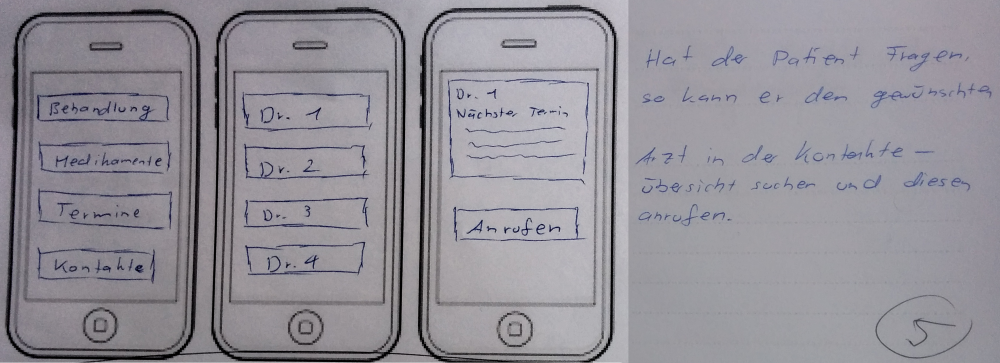 Behandlung
Medikamente
Termine
Kontakte
Dr. 1
Dr. 2
Dr. 3
Dr. 4
Dr. 1
Nächster Termin
Anrufen
Hat der Patient Fragen,
so kann er den gewünschten
Arzt in der Kontakte-
übersicht suchen und diesen
anrufen.
5